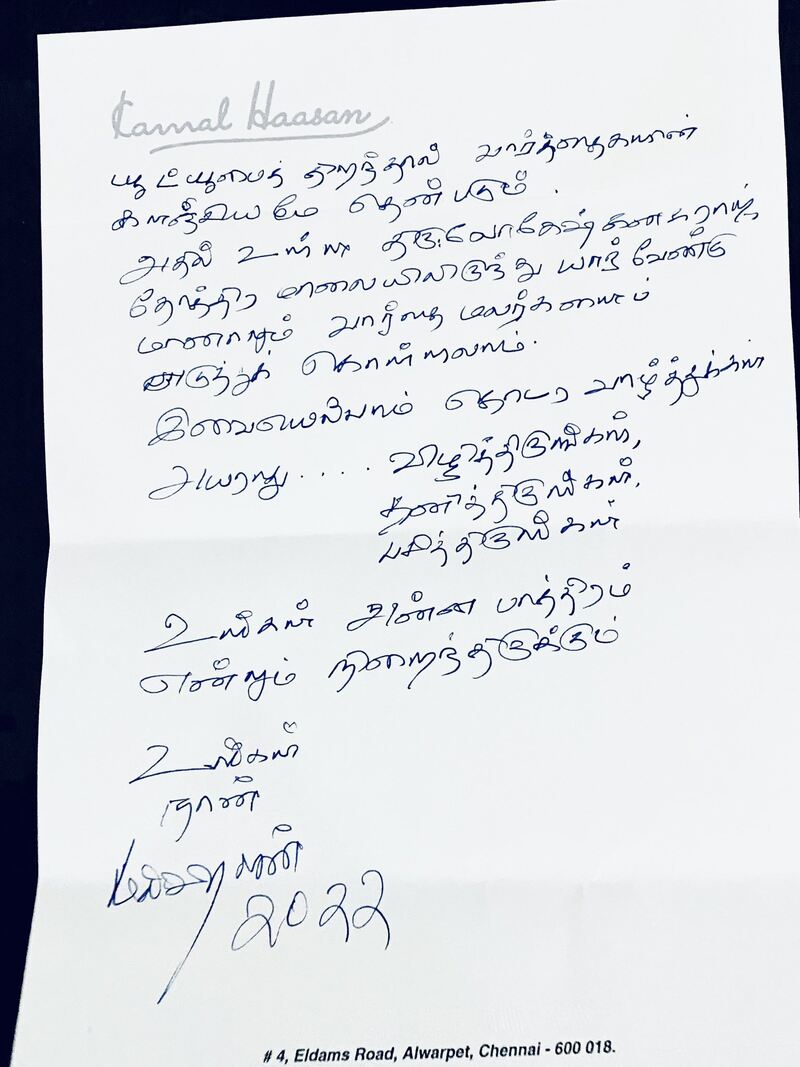 Kamal Haasan
யூட்யூபைத் திறந்தால் வார்த்தைகளின்
காஜியமே தென்படும்.
அதில் உள்ள திரு.லோகேஷ் கனகராஜ்
தோத்திர மாலையிலிருந்து யார் வேண்டு
மானாலும் வார்தை மலர்களைம்
எடுத்துக் கொள்ளலாம்.
இவையெல்லாம் தொடர வாழ்த்துக்கள்
அயராது.... விழித்திருங்கள்,
தனித்திருங்கள்.
பசித்திருங்கள்
உங்கள் அன்ன பாத்திரம்
என்றும் நிறைந்திருக்கும்
உங்கள்
நான்
கமல்ஹாசன்
2022
# 4, Eldams Road, Alwarpet, Chennai - 600 018.